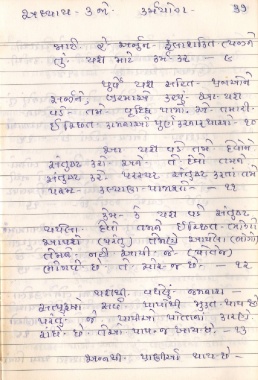 અધ્યાય - ૩જો કર્મયોગ ૩૭
માટે હે અર્જુન ફલાશક્તિ ત્યજીને
તું યજ્ઞ માટે કર્મ કર — ૯
પૂર્વે યજ્ઞ સહિત પ્રજાઓને
સર્જીને, બ્રહ્માએ કહ્યું આ યજ્ઞ
વડે તમે વૃદ્ધિ પામો, એ તમારી
ઈચ્છિત કામનાઓ પૂર્ણ કરનાર થાઓ - ૧૦
આ યજ્ઞ વડે તમે દેવોને
સંતુષ્ટ કરો અને તે દેવો તમને
સંતુષ્ટ કરો પરસ્પર સંતુષ્ટ કરતાં તમે
પરમ કલ્યાણ પામશો — ૧૧
કેમ કે યજ્ઞ વડે સંતુષ્ટ
થયેલા દેવો તમને ઈચ્છિત ભોગો
આપશે (પરંતુ) તેમણે આપેલા (ભોગો)
તેમને નહી આપી જે (પોતેજ)
ભોગવે છે તે ચોર જ છે. — ૧૨
યજ્ઞથી વધેલું જમનારા
સત્પુરુષો સર્વ પાપોથી મુક્ત થાય છે
પરંતુ જે પાપીઓ પોતાના કારણે
રાંધે છે તેઓ પાપ જ ખાય છે — ૧૩
અન્નથી પ્રાણીઓ થાય છે -